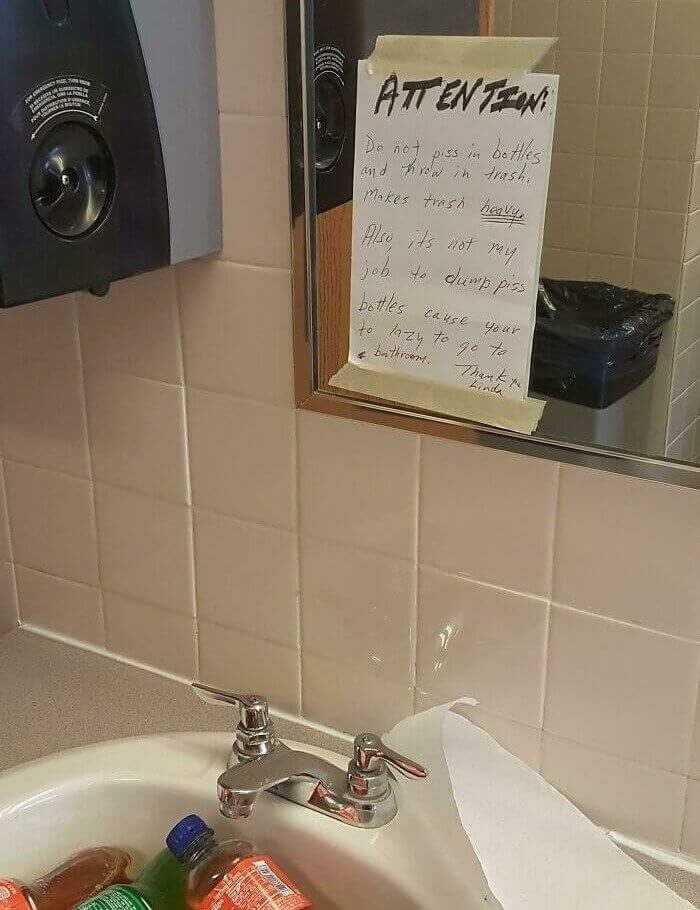 FOR EMERGENCY FEED, TURN KNOB
ATTENTION!
Do not piss in bottles
and throw in trash.
Makes trash heavy.
Also, its not my
job to dump piss
bottles cause your
to lazy to go to
bathroom. Thank you
Linda